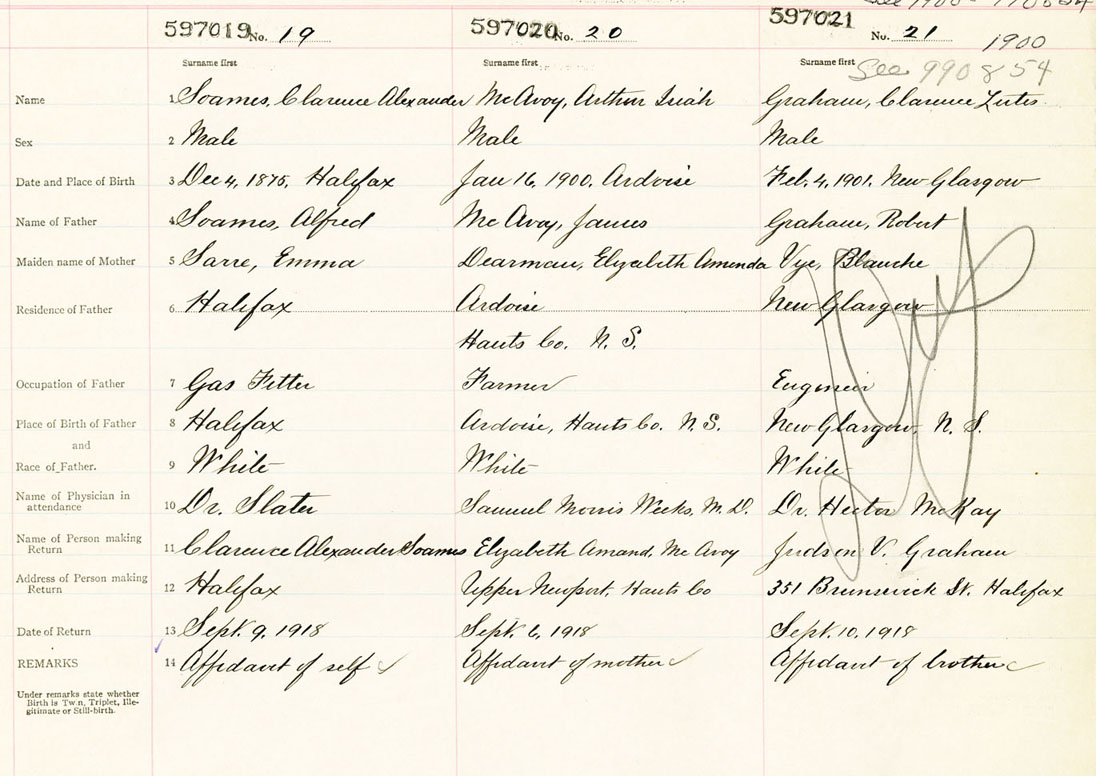 597019 No. 19 597020 No. 20 597021 No. 21 1900
Surname first Surname first Surname first See 990854
Name 1 Soames, Clarence Alexander McAvoy, Arthur Isiah Graham, Clarence
Sex 2 Male Male Male
Date and Place of Birth 3 Dec 4, 1875, Halifax Jan 16, 1900, Ardoise Feb. 4, 1901. New Glasgow
Name of Father 4 Soames, Alfred McAvoy, James Graham, Robert
Maiden name of Mother 5 Sarre, Emma Dearman, Elizabeth Amenda Vye, Blanche
Residence of Father 6 Halifax Ardoise New Glasgow
Hants Co. N. S.
Occupation of Father 7 Gas Fitter Farmer Engineir
Place of Birth of Father 8 Halifax Ardoise, Hants Co. N. S. New Glasgow, N. S.
and
Race of Father. 9 White White White
Name of Physician in
attendance 10 Dr. Slater Samuel Morris Weeks, M. D. Dr. Hector McKay
Name of Person making
Return 11 Clarence Alexander Soames Elizabeth Amand, McAvoy Judson V. Graham
Address of Person making
Return 12 Halifax Upper Newport, Hants Co 351 Brunswick St. Halifax
Date of Return 13 Sept. 9, 1918 Sept. 6, 1918 Sept. 10, 1918
REMARKS 14 Affidavit of self Affidavit of mother Affidavit of brother
Under remarks state whether
Birth is Twin, Triplet, Ille-
gitimate or Still-birth.